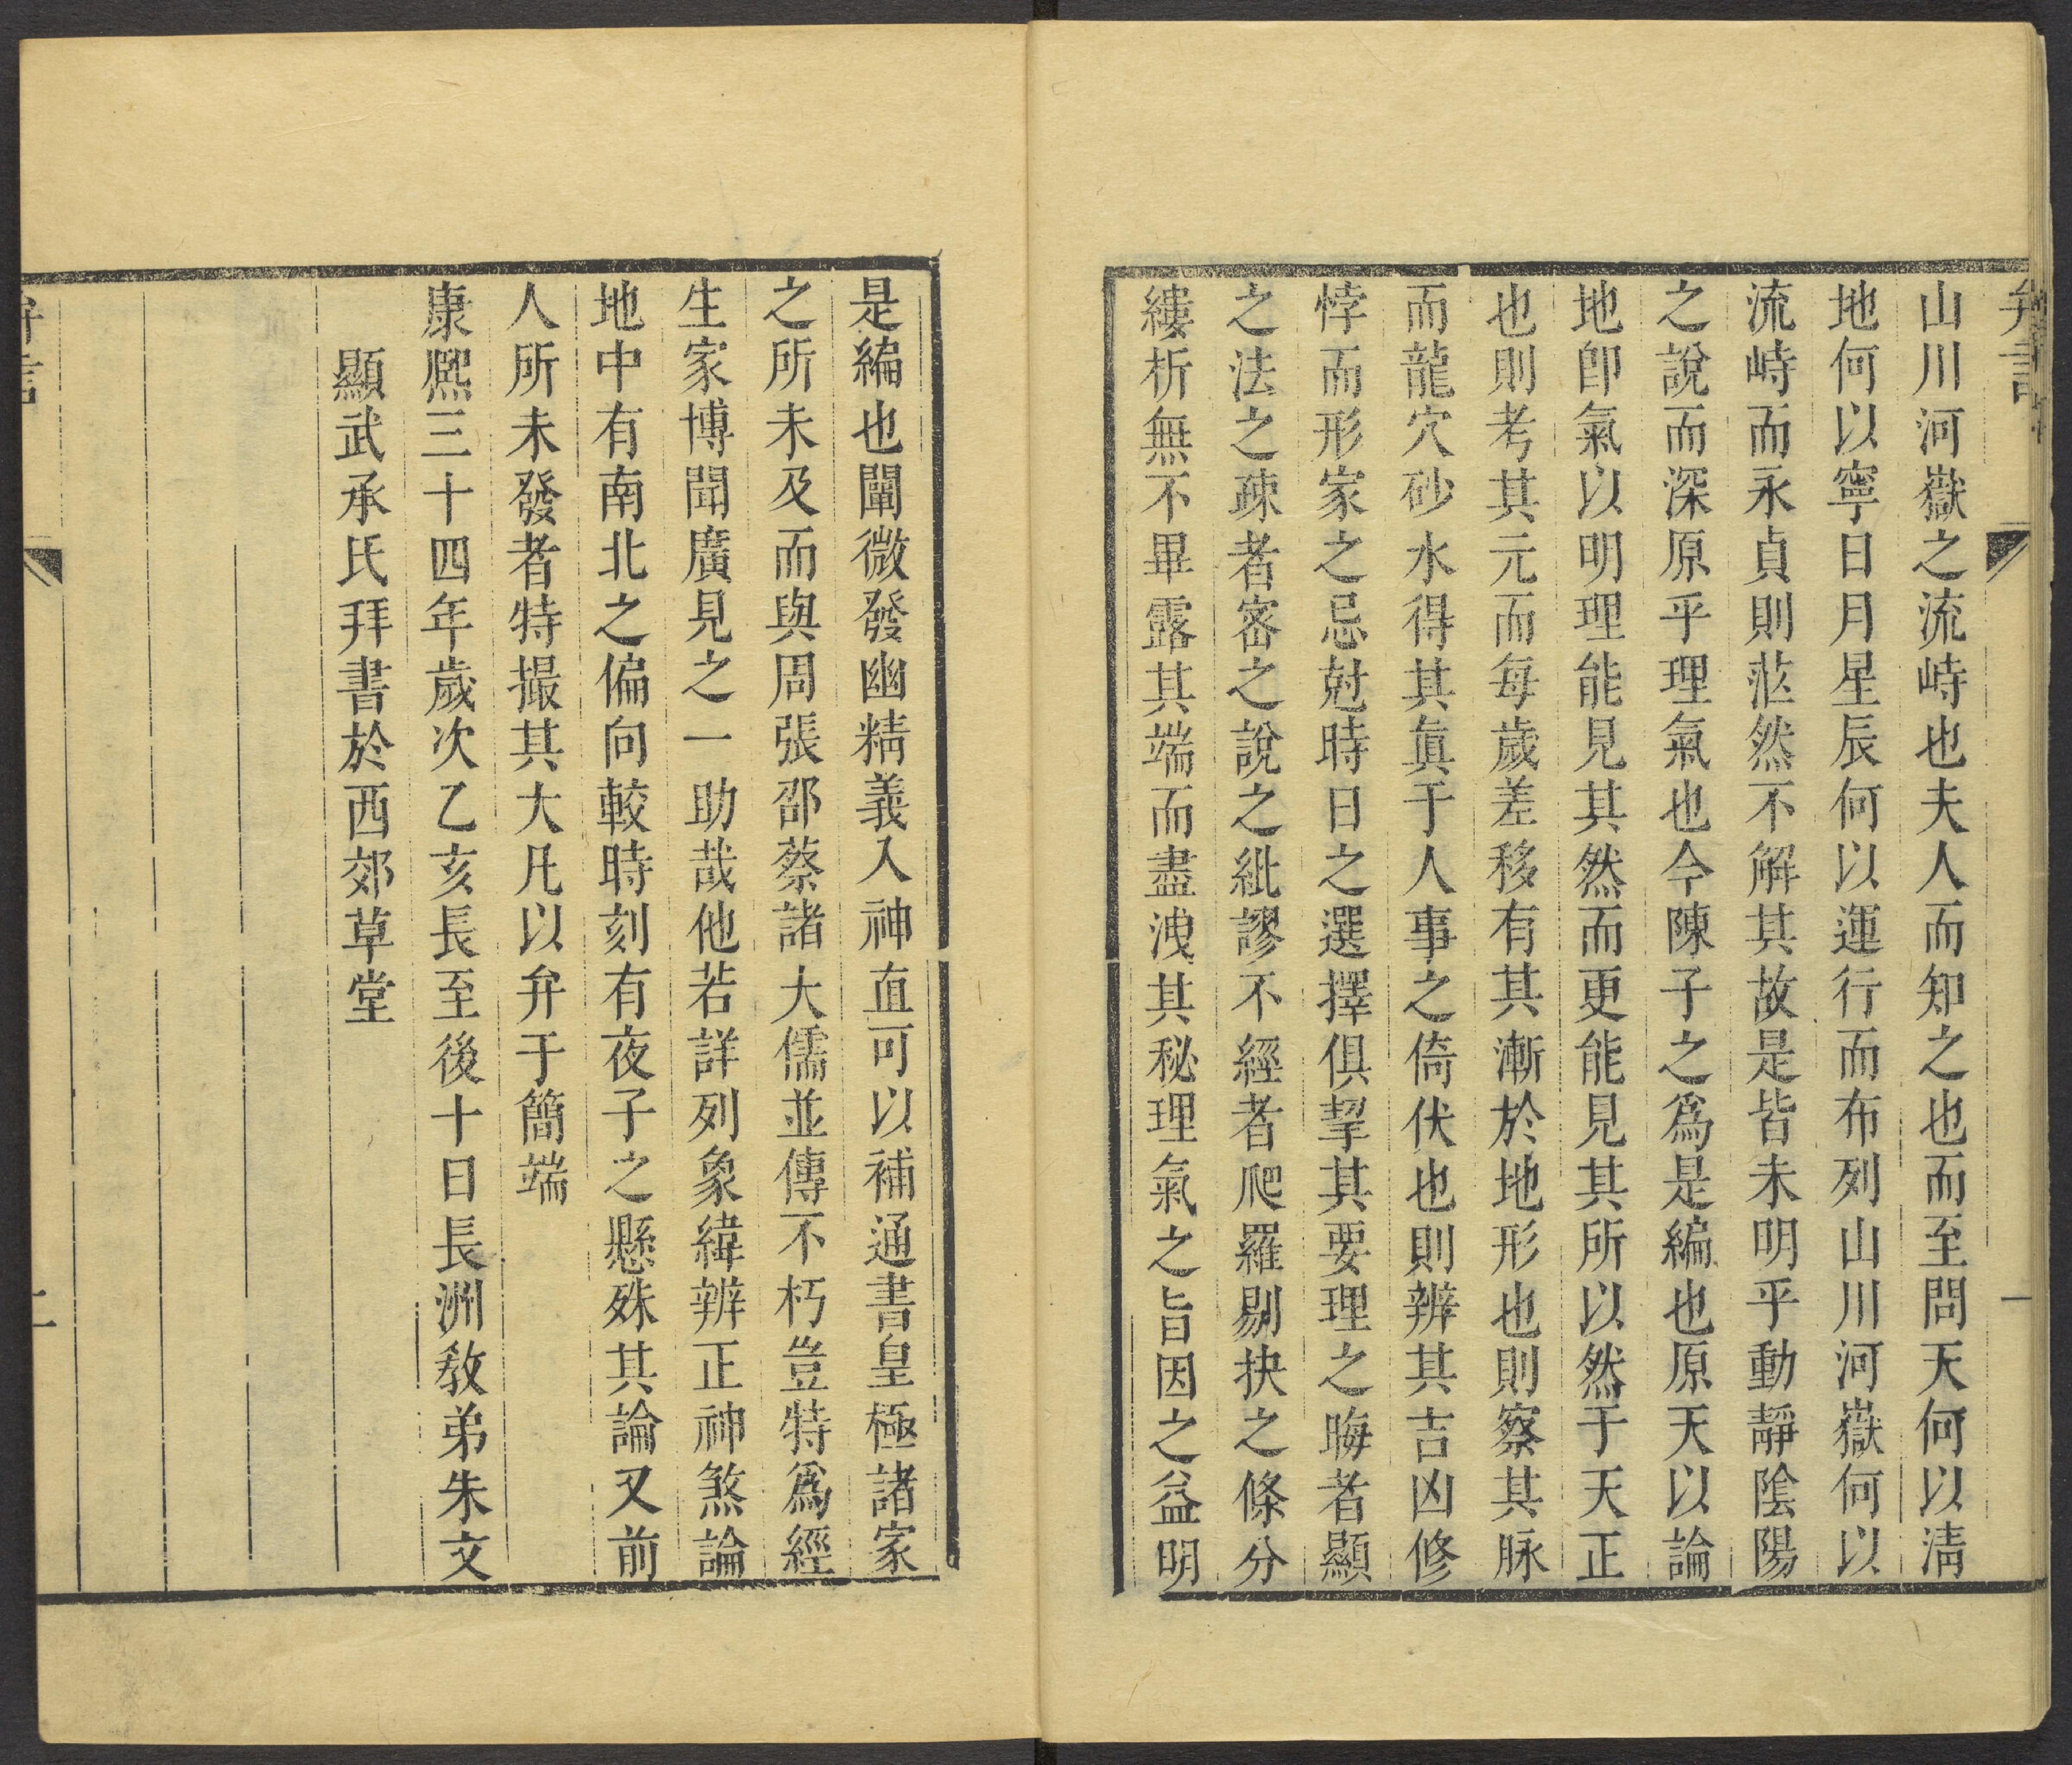 弁言
一
山川河嶽之流峙也夫人而知之也而至問天何以淸
地何以寧日月星辰何以運行而布列山川河嶽何以
流峙而永貞則茫然不解其故是皆未明乎動靜陰陽
之說而深原乎理氣也今陳子之爲是編也原天以論
地卽氣以明理能見其然而更能見其所以然于天正
也則考其元而每歲差移有其漸於地形也則察其脉
而龍穴砂水得其眞于人事之倚伏也則辨其吉凶修
悖而形家之忌尅時日之選擇俱挈其要理之晦者顯
之法之疎者密之說之紕謬不經者爬羅剔抉之條分
縷析無不畢露其端而盡洩其秘理氣之旨因之益明
是編也闡微發幽精義入神直可以補通書皇極諸家
之所未及而與周張邵蔡諸大儒並傳不朽豈特爲經
生家博聞廣見之一助哉他若詳列象緯辨正神煞論
地中有南北之偏向較時刻有夜子之懸殊其論又前
人所未發者特撮其大凡以弁于簡端
康熙三十四年歲次乙亥長至後十日長洲敎弟朱文
顯武承氏拜書於西郊草堂
弁言
二